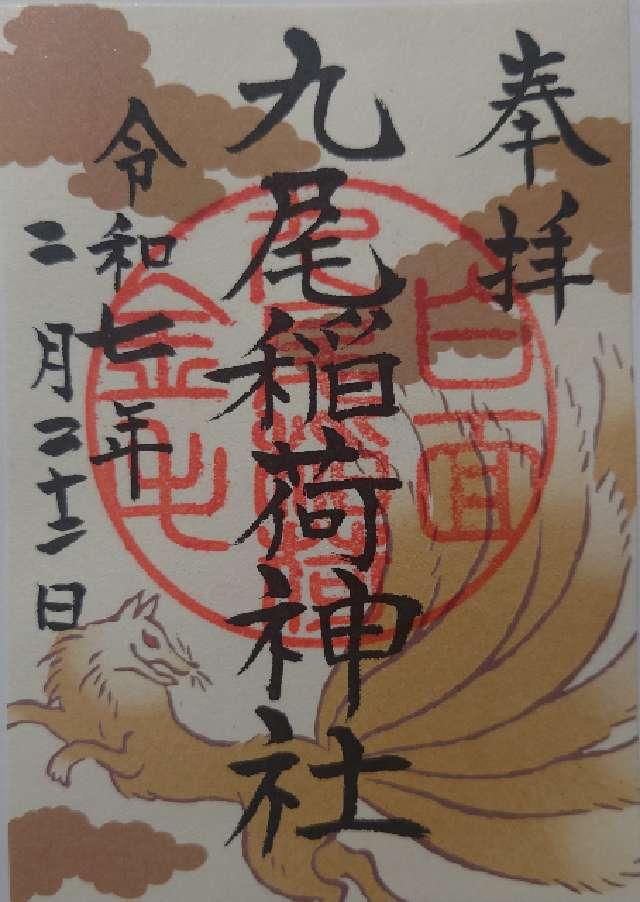 奉拝
九尾稲荷神社
令和七年
二月二十二日
白面
金毛